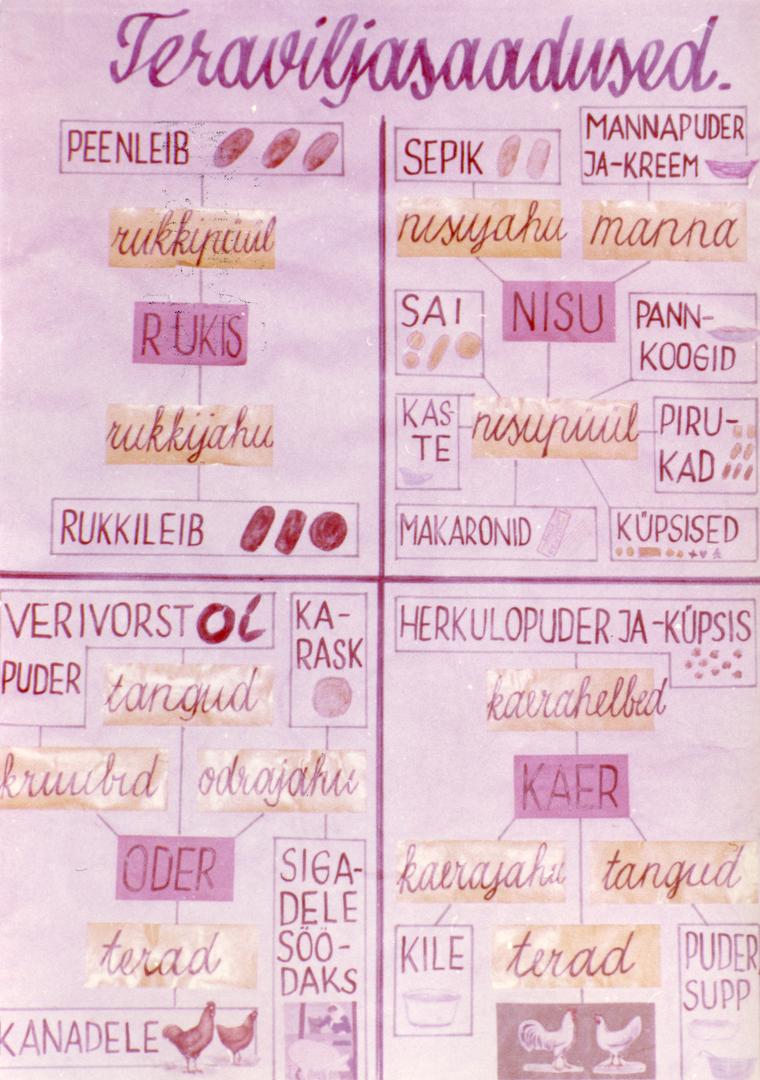 Teraviljasaadused.
PEENLEIB
rukkipüül
RUKIS
rukkijahu
RUKKILEIB
SEPIK
MANNAPUDER
JA-KREEM
nisujahu
manna
NISU
SAI
PANN-
KOOGID
KAS-
TE
nisupüül
PIRU-
KAD
MAKARONID
KÜPSISED
VERIVORST
PUDER
KA-
RASK
tangud
kruubid
odrajahu
ODER
SIGA-
DELE
SÖÖ-
DAKS
terad
KANADELE
HERKULOPUDER JA-KÜPSIS
kaerahelbed
KAER
kaerajahu
tangud
KILE
terad
PUDER
SUPP